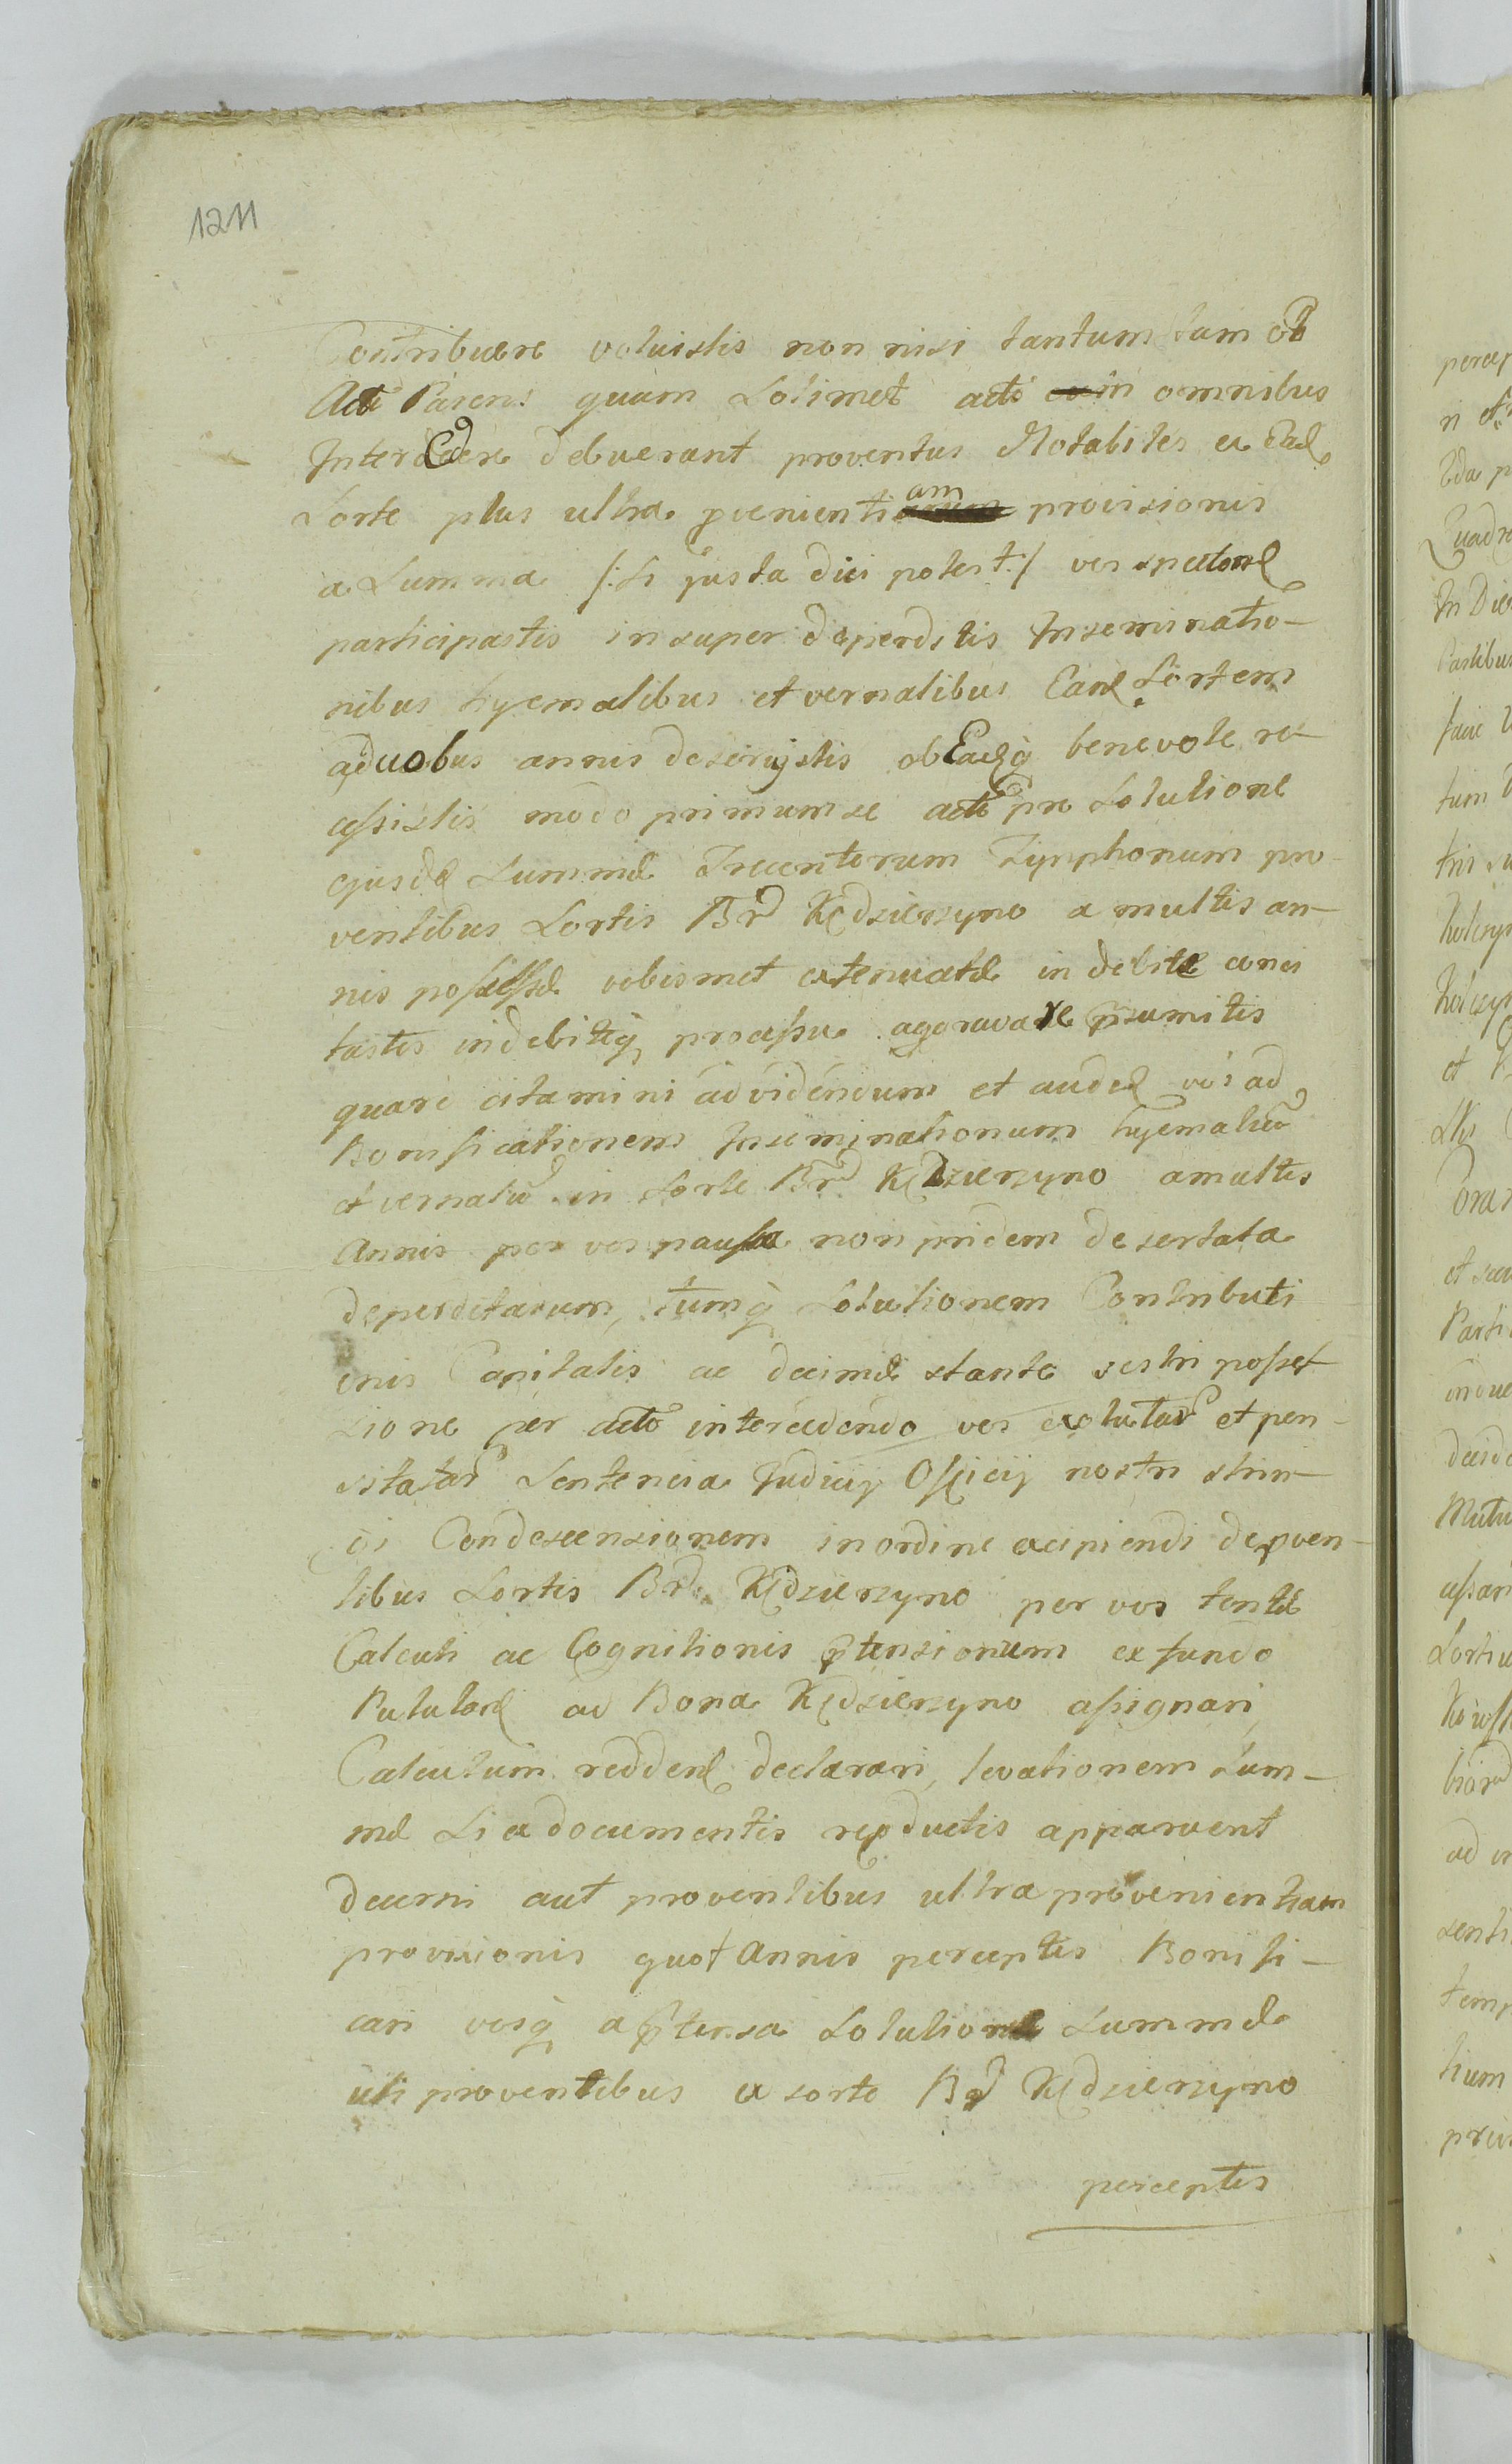 1211
Contribuere voluistis non nisi tantum tam ob
Acti Paren: quam Solimet acti in omnibus
Intercedere debuerant proventus Notabiles ex Ead
Sorte plus ultra pvenientiam provisionis
a Summa /:Si justa dici potest:/ vos spectan
participastis insuper deperditis Inseminatio-
nibus hyemalibus et vernalibus Eand Sortem
aduobus annis deserujstis ob Eadq benevole re-
cessistis modo primum se acto pro Solutione
ejusd Summæ Trecentorum Tynphonum pro
ventibus Sortis Brd Kędzierzyno a multis an-
nis possessæ vobismet extenuatæ indebite conci
tastis indebitoq processu aggravare psumitis
quare citamini advidendum et audd vos ad
Bonificationem Inseminationum hyemaliu
et vernaliu in Sorte Brd Kędzierzyno amultis
Annis per vos non pridem desertata
deperditarum, tumq Solutionem Contributi
onis Capitalis ac decimæ stante vestri posses
sione per acto intercedendo vos exolutar et pen-
sitatar Sentencia Judicij Officij nostri strin-
gi Condescensionem inordine excipiendi depven-
tibus Sortis Brd Kędzierzyno per vos tentæ
Calculi ac Cognitionis ptensionum exfundo
Pululan ad Bona Kędzierzyno assignari,
Calculum reddend declarari, levationem Sum-
mæ Si ex documentis repductis apparuent
decerni aut proventibus ultra provenientiam
provisionis quot Annis perceptis Bonifi-
cari vosq a ptensa Solutione Summæ
uti proventibus ex sorte Brd Kędzierzyno
perceptis